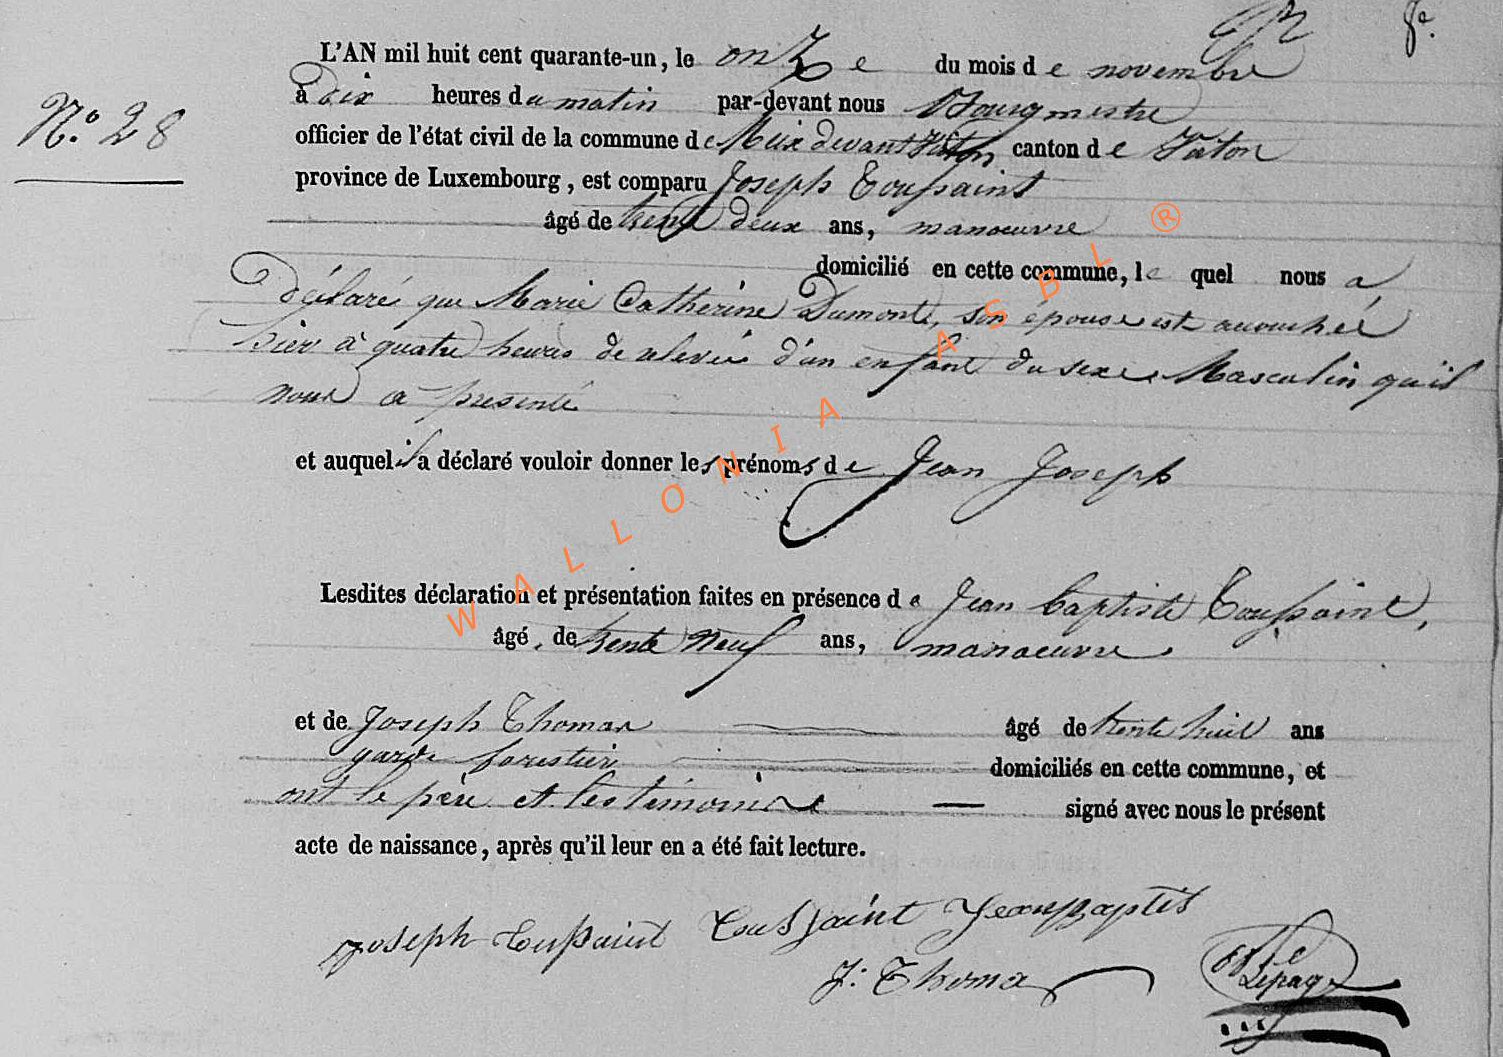 8e.
L'AN mil huit cent quarante-un, le onze du mois de novembre
à dix heures du matin par-devant nous Bourgmestre
N.° 28
officier de l'état civil de la commune de Meix devant Virton canton de Virton
province de Luxembourg, est comparu Joseph Toussaint
âgé de trente deux ans, manoeuvre
domicilié en cette commune, le quel nous a
déclaré que Marie Catherine Dumont, son épouse est accouchée
hier à quatre heures de relevée d'un enfant du sexe Masculin qu'il
nous a présenté
et auquel il a déclaré vouloir donner les prénoms de Jean Joseph
Lesdites déclaration et présentation faites en présence de Jean baptiste Toussaint,
âgé de trente neuf ans, manoeuvre
et de Joseph Thomas âgé de trente huit ans
garde forestier domiciliés en cette commune, et
ont le père et les témoins signé avec nous le présent
acte de naissance, après qu'il leur en a été fait lecture.
Joseph Toussaint Toussaint Jean Baptis
J: Thoma Lepage
WALLONIA ASBL ®